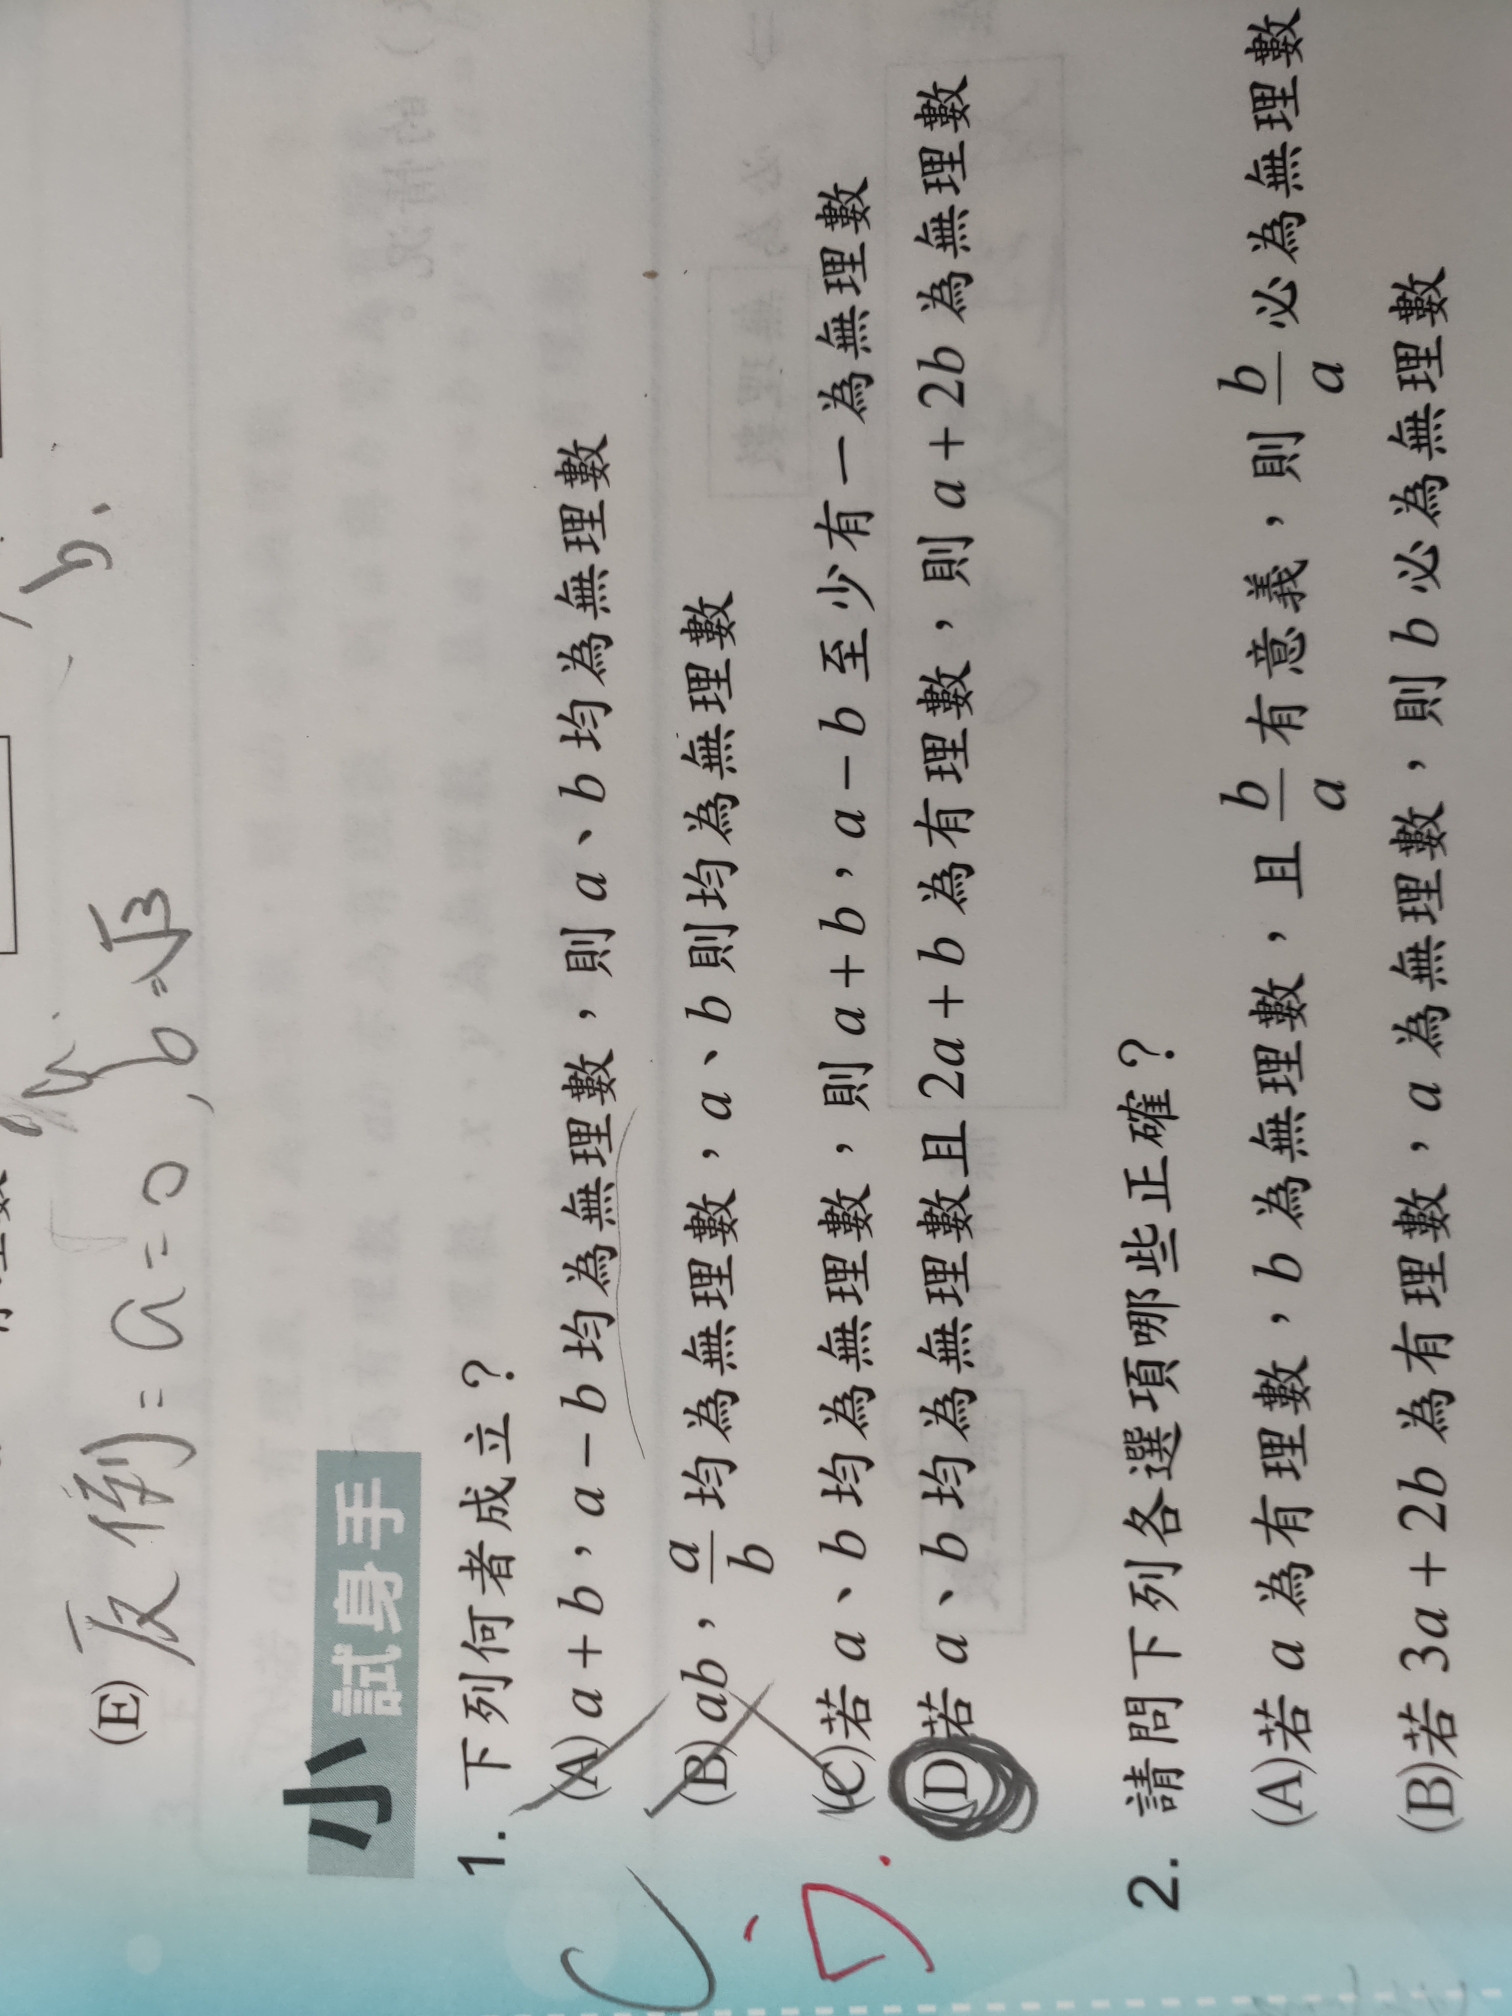 (E) 反例：a=0, b=√3
小試身手
1. 下列何者成立？
(A) a+b，a−b 均為無理數，則 a、b 均為無理數
(B) ab，a/b 均為無理數，a、b 則均為無理數
(C)若 a、b 均為無理數，則 a+b，a−b 至少有一為無理數
(D)若 a、b 均為無理數且 2a+b 為有理數，則 a+2b 為無理數
D.
2. 請問下列各選項哪些正確？
(A)若 a 為有理數，b 為無理數，且 b/a 有意義，則 b/a 必為無理數
(B)若 3a+2b 為有理數，a 為無理數，則 b 必為無理數